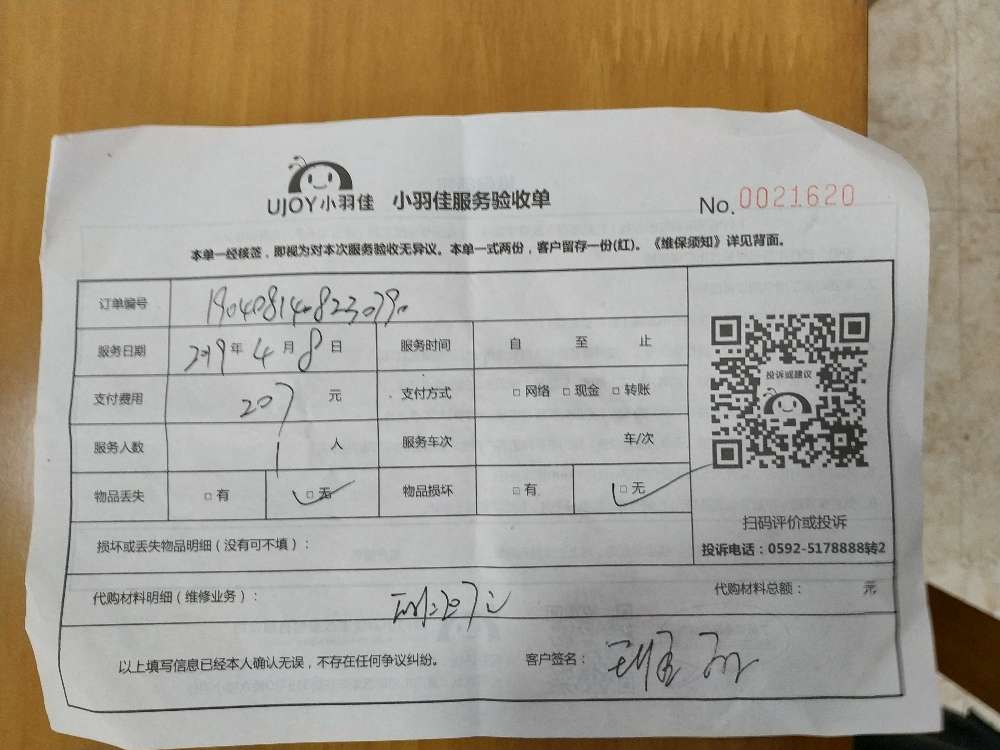 UJOY小羽佳 小羽佳服务验收单 No. 0021620
本单一经核签，即视为对本次服务验收无异议。本单一式两份，客户留存一份(红)。《维保须知》详见背面。
订单编号
服务日期 2019 年 4 月 8 日 服务时间 自 至 止
支付费用 207 元 支付方式 □ 网络 □ 现金 □ 转账
服务人数 1 人 服务车次 车/次
物品丢失 □ 有 □ 无 物品损坏 □ 有 □ 无
投诉或建议
扫码评价或投诉
投诉电话：0592-5178888转2
损坏或丢失物品明细（没有可不填）：
代购材料明细（维修业务）： 代购材料总额： 元
以上填写信息已经本人确认无误，不存在任何争议纠纷。 客户签名：